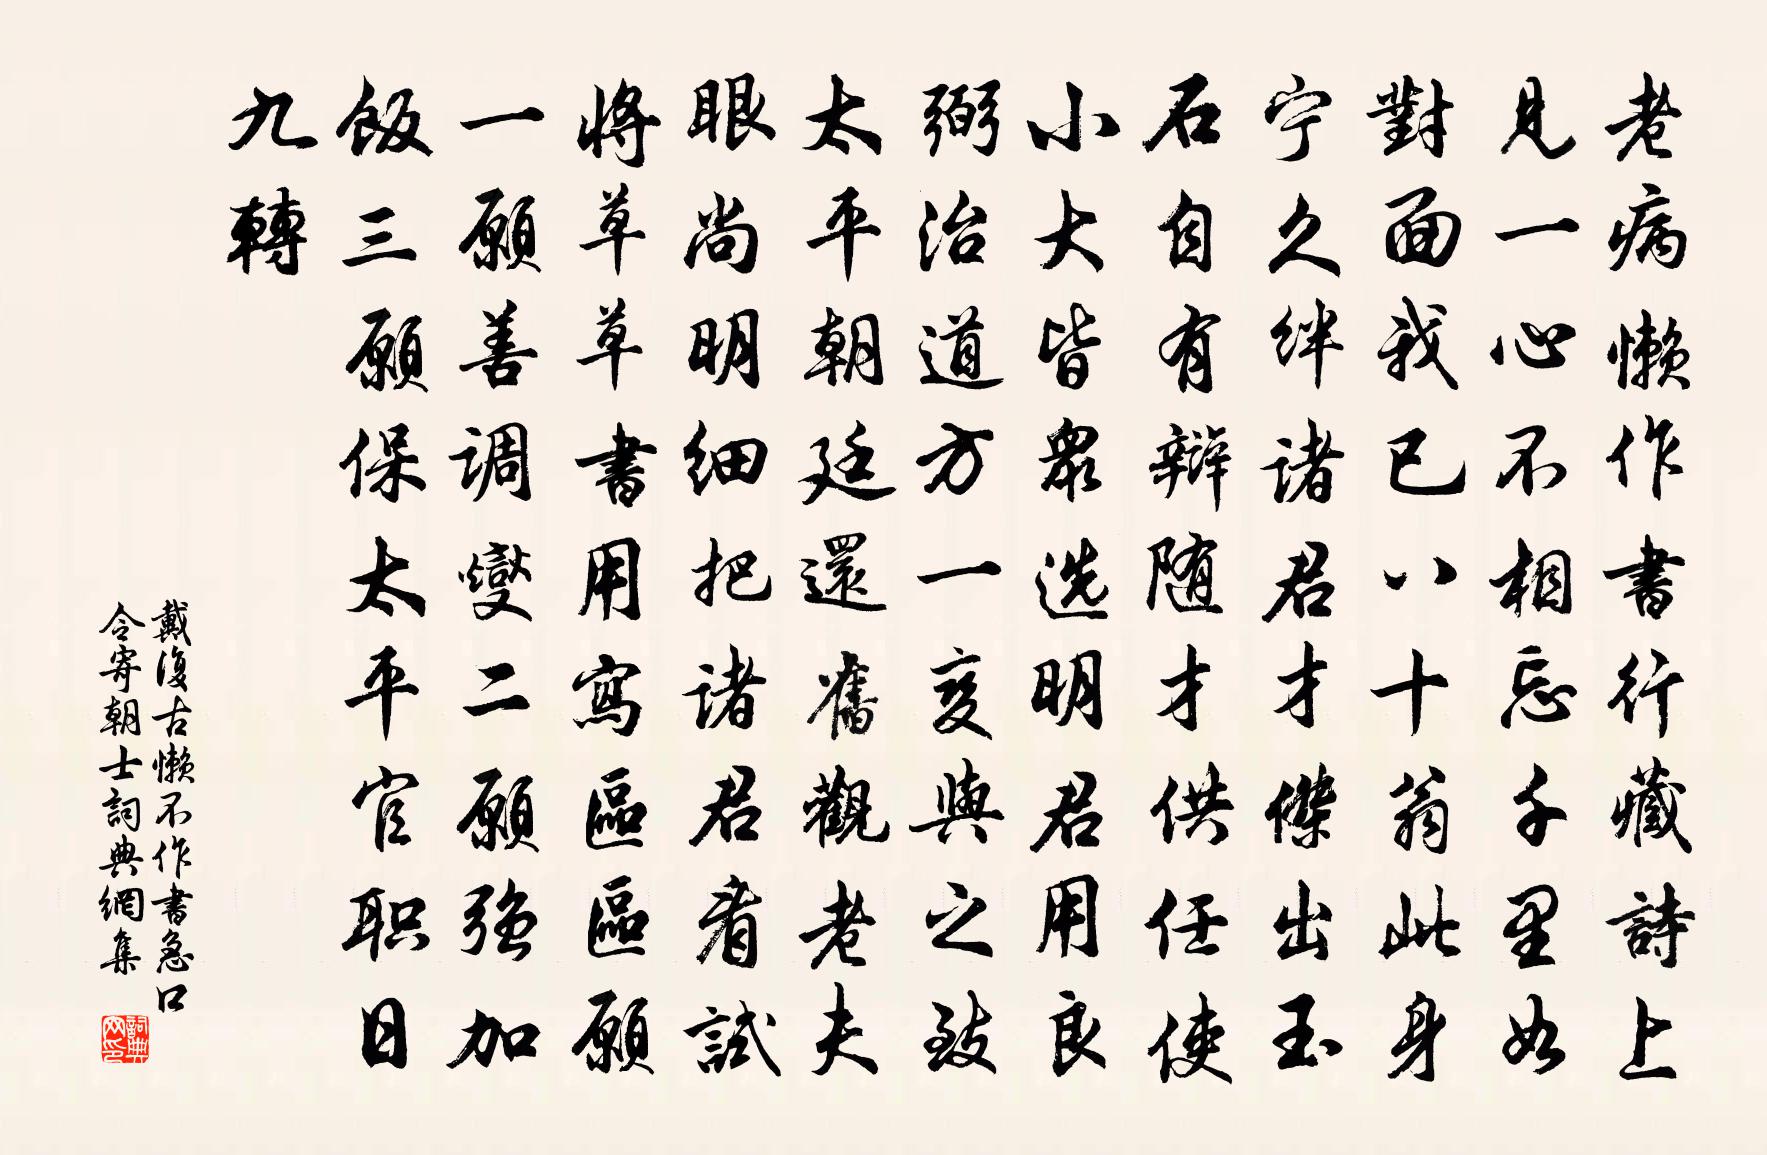 老病懶作書行藏詩上
見一心不相忘千里如
對面我已八十翁此身
宁久絆诸君才傑出玉
石自有辯随才供任使
小大皆眾选明君用良
弼治道方一变與之致
太平朝廷還舊觀老夫
眼尚明细把诸君看試
將草草書用寫區區願
一願善调燮二願强加
飯三願保太平官职日
九轉
戴復古懶不作書急口
令寄朝士詞典網集
詞典
网印